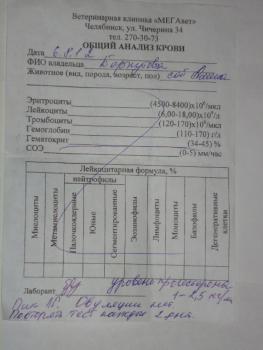 Ветеринарная клиника «МЕГАвет»
Челябинск, ул. Чичерина 34
тел. 270-30-73
ОБЩИЙ АНАЛИЗ КРОВИ
Дата 6.8.12
ФИО владельца
Животное (вид, порода, возраст, пол) соб
Эритроциты (4500-8400)х10⁶/мкл
Лейкоциты (6,00-18,00)х10³/мкл
Тромбоциты (120-170)х10³/мкл
Гемоглобин (110-170) г/л
Гематокрит (34-45) %
СОЭ (0-5) мм/час
Лейкоцитарная формула, %
нейтрофилы
Миелоциты
Метамиелоциты
Палочкоядерные
Юные
Сегментированные
Эозинофилы
Лимфоциты
Моноциты
Базофилы
Дегенеративные клетки
Лаборант уровень прогестерона
1-2,5 нг/мл
Пик ЛГ Овуляции нет
Повторять тест каждые 2 дня.